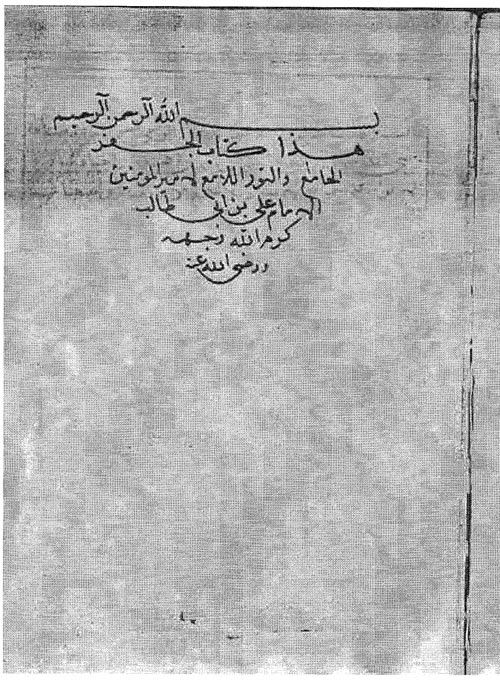 بسم الله الرحمن الرحيم
هذا كتاب الجفر
الجامع والنور اللامع لامير المومنين
الامام علي بن ابي طالب
كرم الله وجهه
ورضى الله عنه